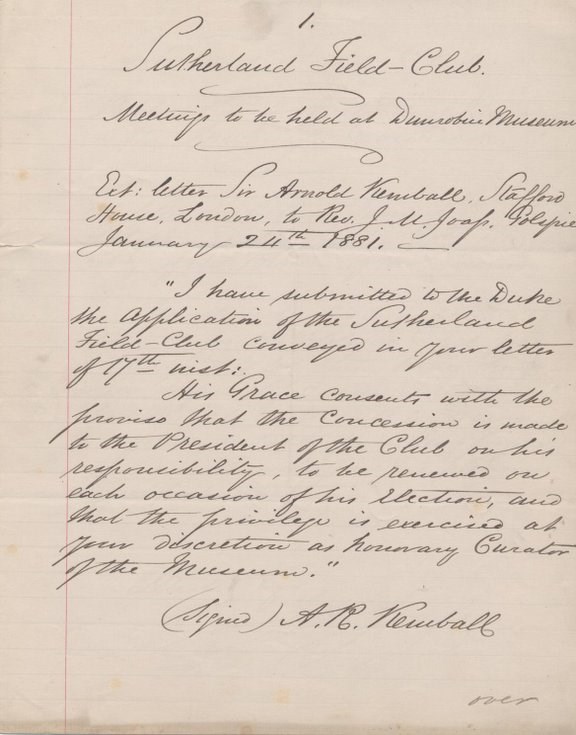 1.
Sutherland Field-Club.
Meetings to be held at Dunrobin Museum
Ext: letter Sir Arnold Kemball, Stafford
House, London, to Rev. J. M. Joass, Golspie
January 24th 1881.
"I have submitted to the Duke
the Application of the Sutherland
Field-Club conveyed in your letter
of 17th inst:
His Grace consents with the
proviso that the Concession is made
to the President of the Club on his
responsibility, to be renewed on
each occasion of his Election, and
that the privilege is exercised at
your discretion as honorary Curator
of the Museum."
(Signed) A. K. Kemball
over